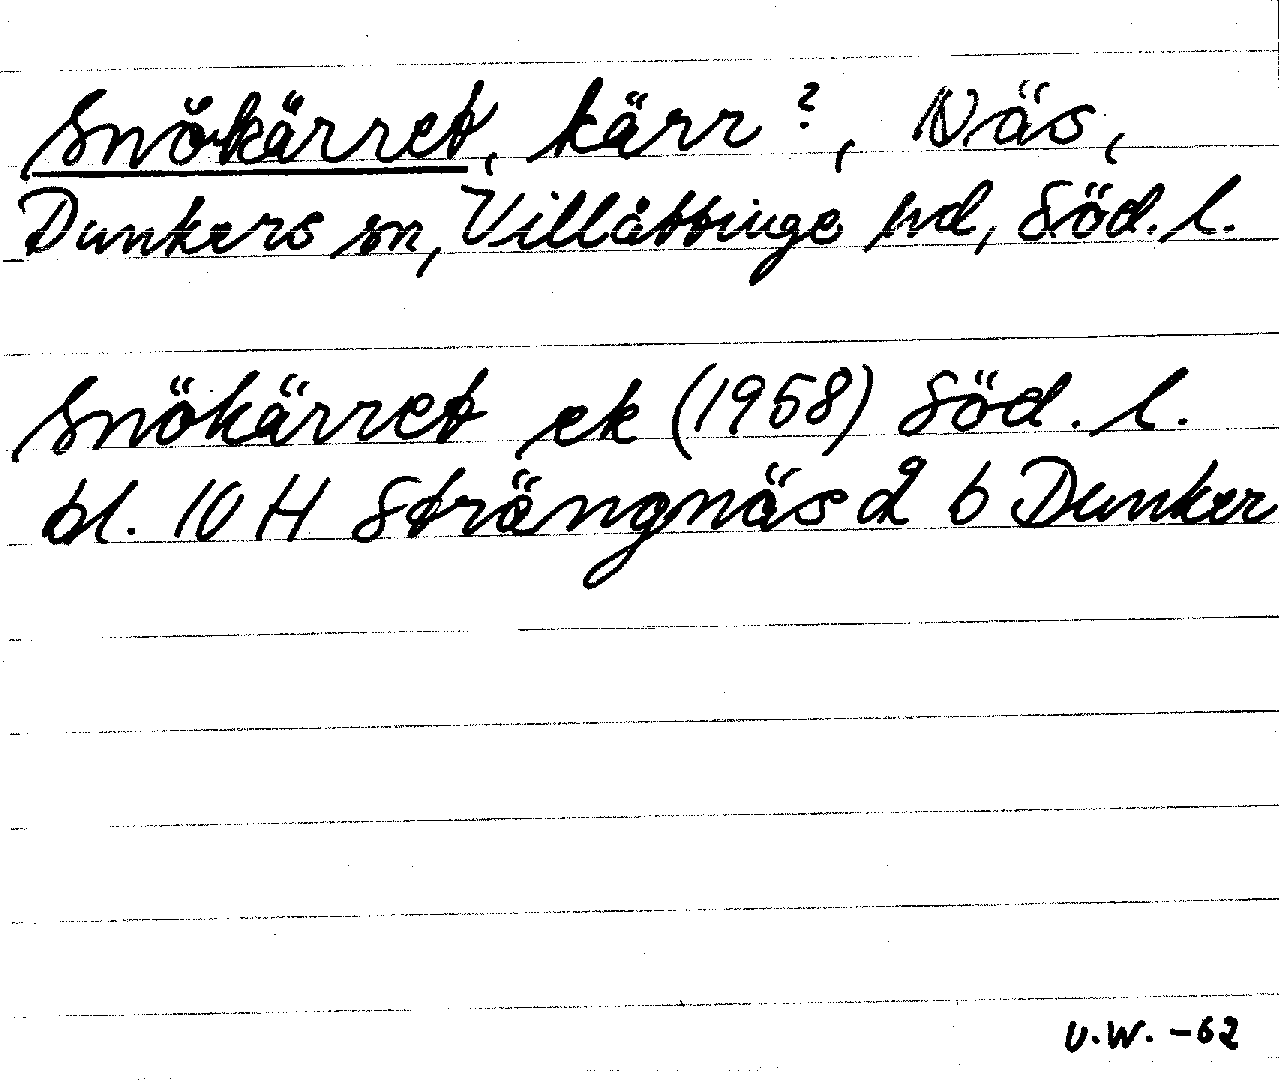 Snökärret, kärr?, Näs,
Dunkers sn, Villåttinge hd, Söd. l.
Snökärret ek (1958) Söd. l.
bl. 10 H Strängnäs 2 b Dunker
U.W. -62